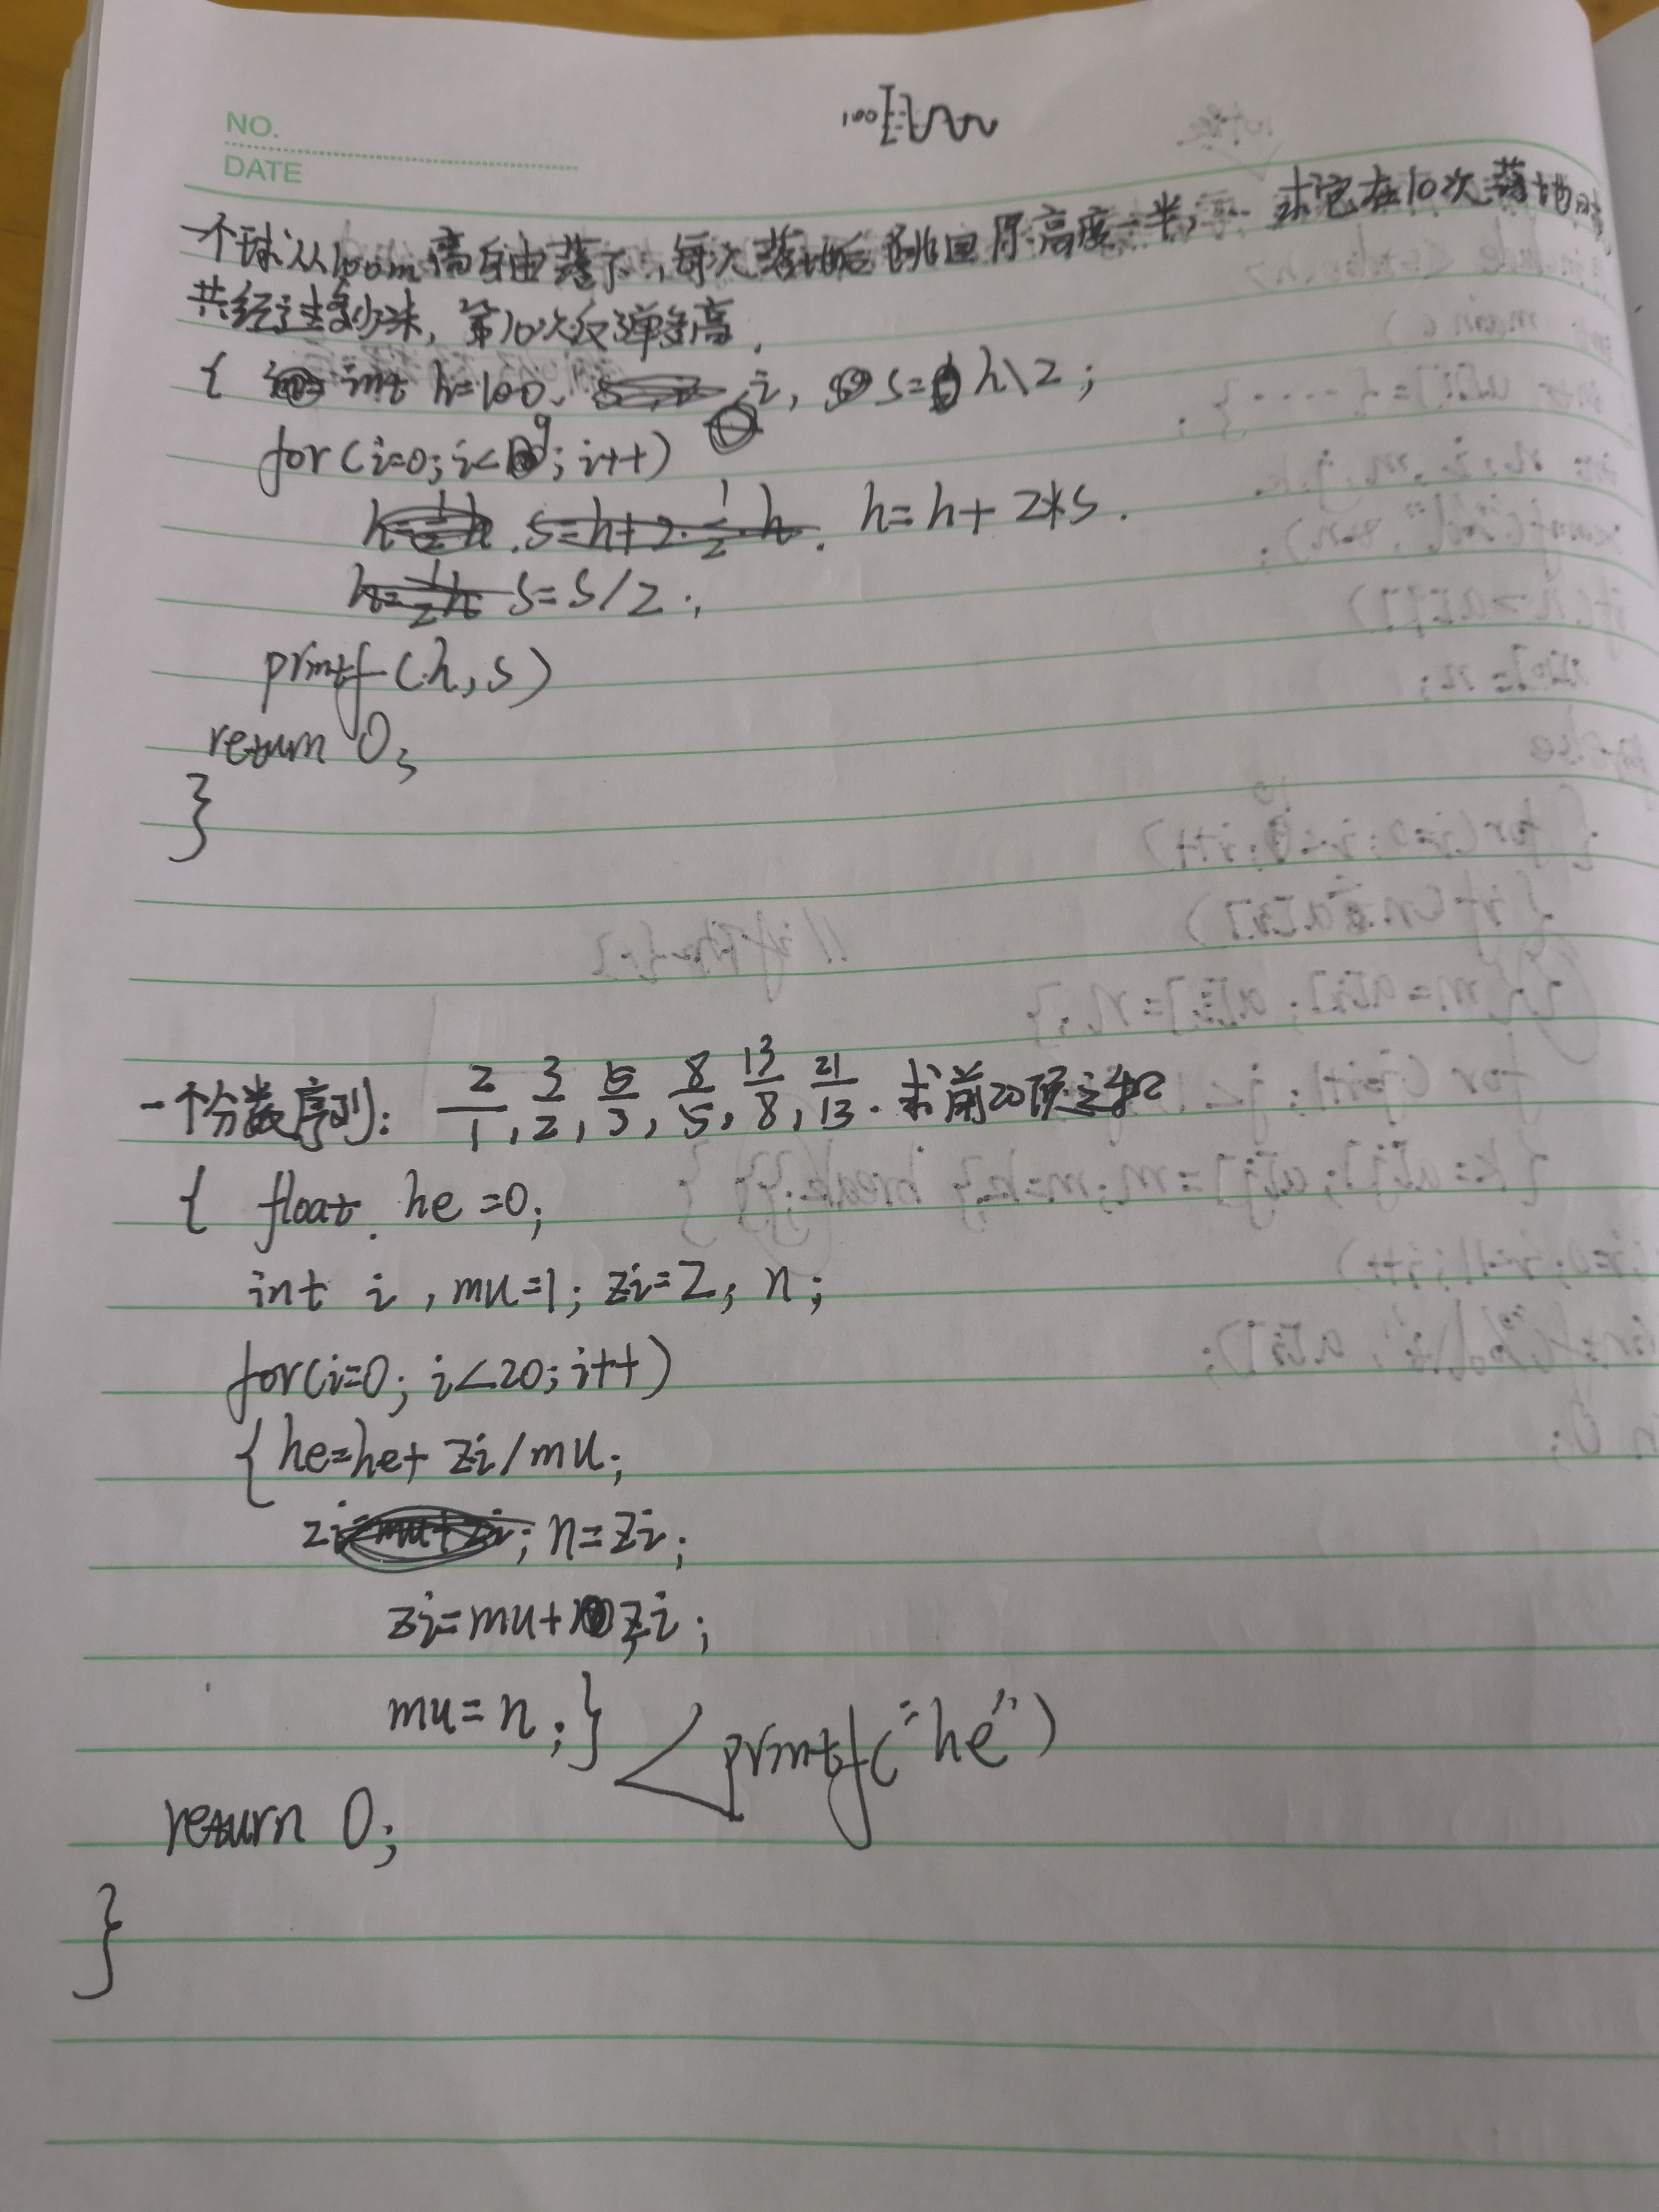 100
NO.
DATE
一个球从100m高自由落下,每次落地后跳回原高度一半,… 求它在10次落地时
共经过多少米,第10次反弹多高.
{ int h=100, i, s=h\2;
for(i=0;i<9;i++)
h=h+2*s.
s=s/2;
printf(h,s)
return 0;
}
一个分数序列: 2/1, 3/2, 5/3, 8/5, 13/8, 21/13. 求前20项之和
{ float he=0;
int i, mu=1; zi=2, n;
for(i=0; i<20; i++)
{ he=he+ zi/mu;
n=zi;
zi=mu+zi;
mu=n;} printf("he")
return 0;
}